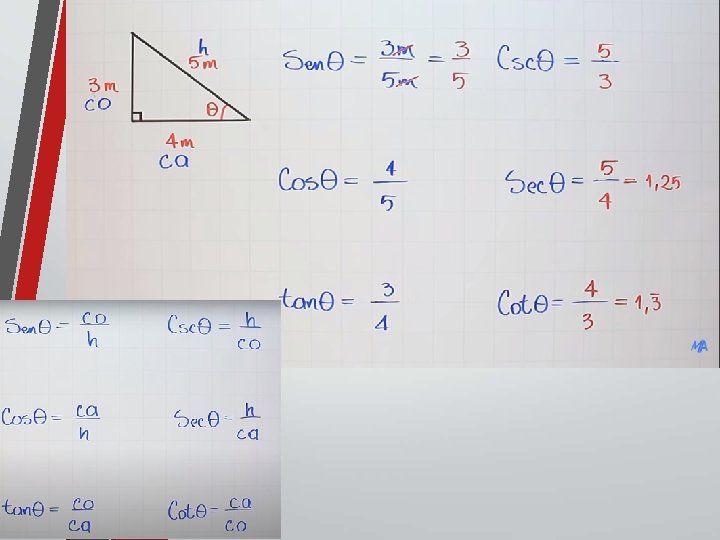 h
5m
3m
co
θ
4m
ca
Senθ = 3m/5m = 3/5
Cscθ = 5/3
Cosθ = 4/5
Secθ = 5/4 = 1,25
tanθ = 3/4
Cotθ = 4/3 = 1,3̅
MA
Senθ = co/h
Cscθ = h/co
Cosθ = ca/h
Secθ = h/ca
tanθ = co/ca
Cotθ = ca/co